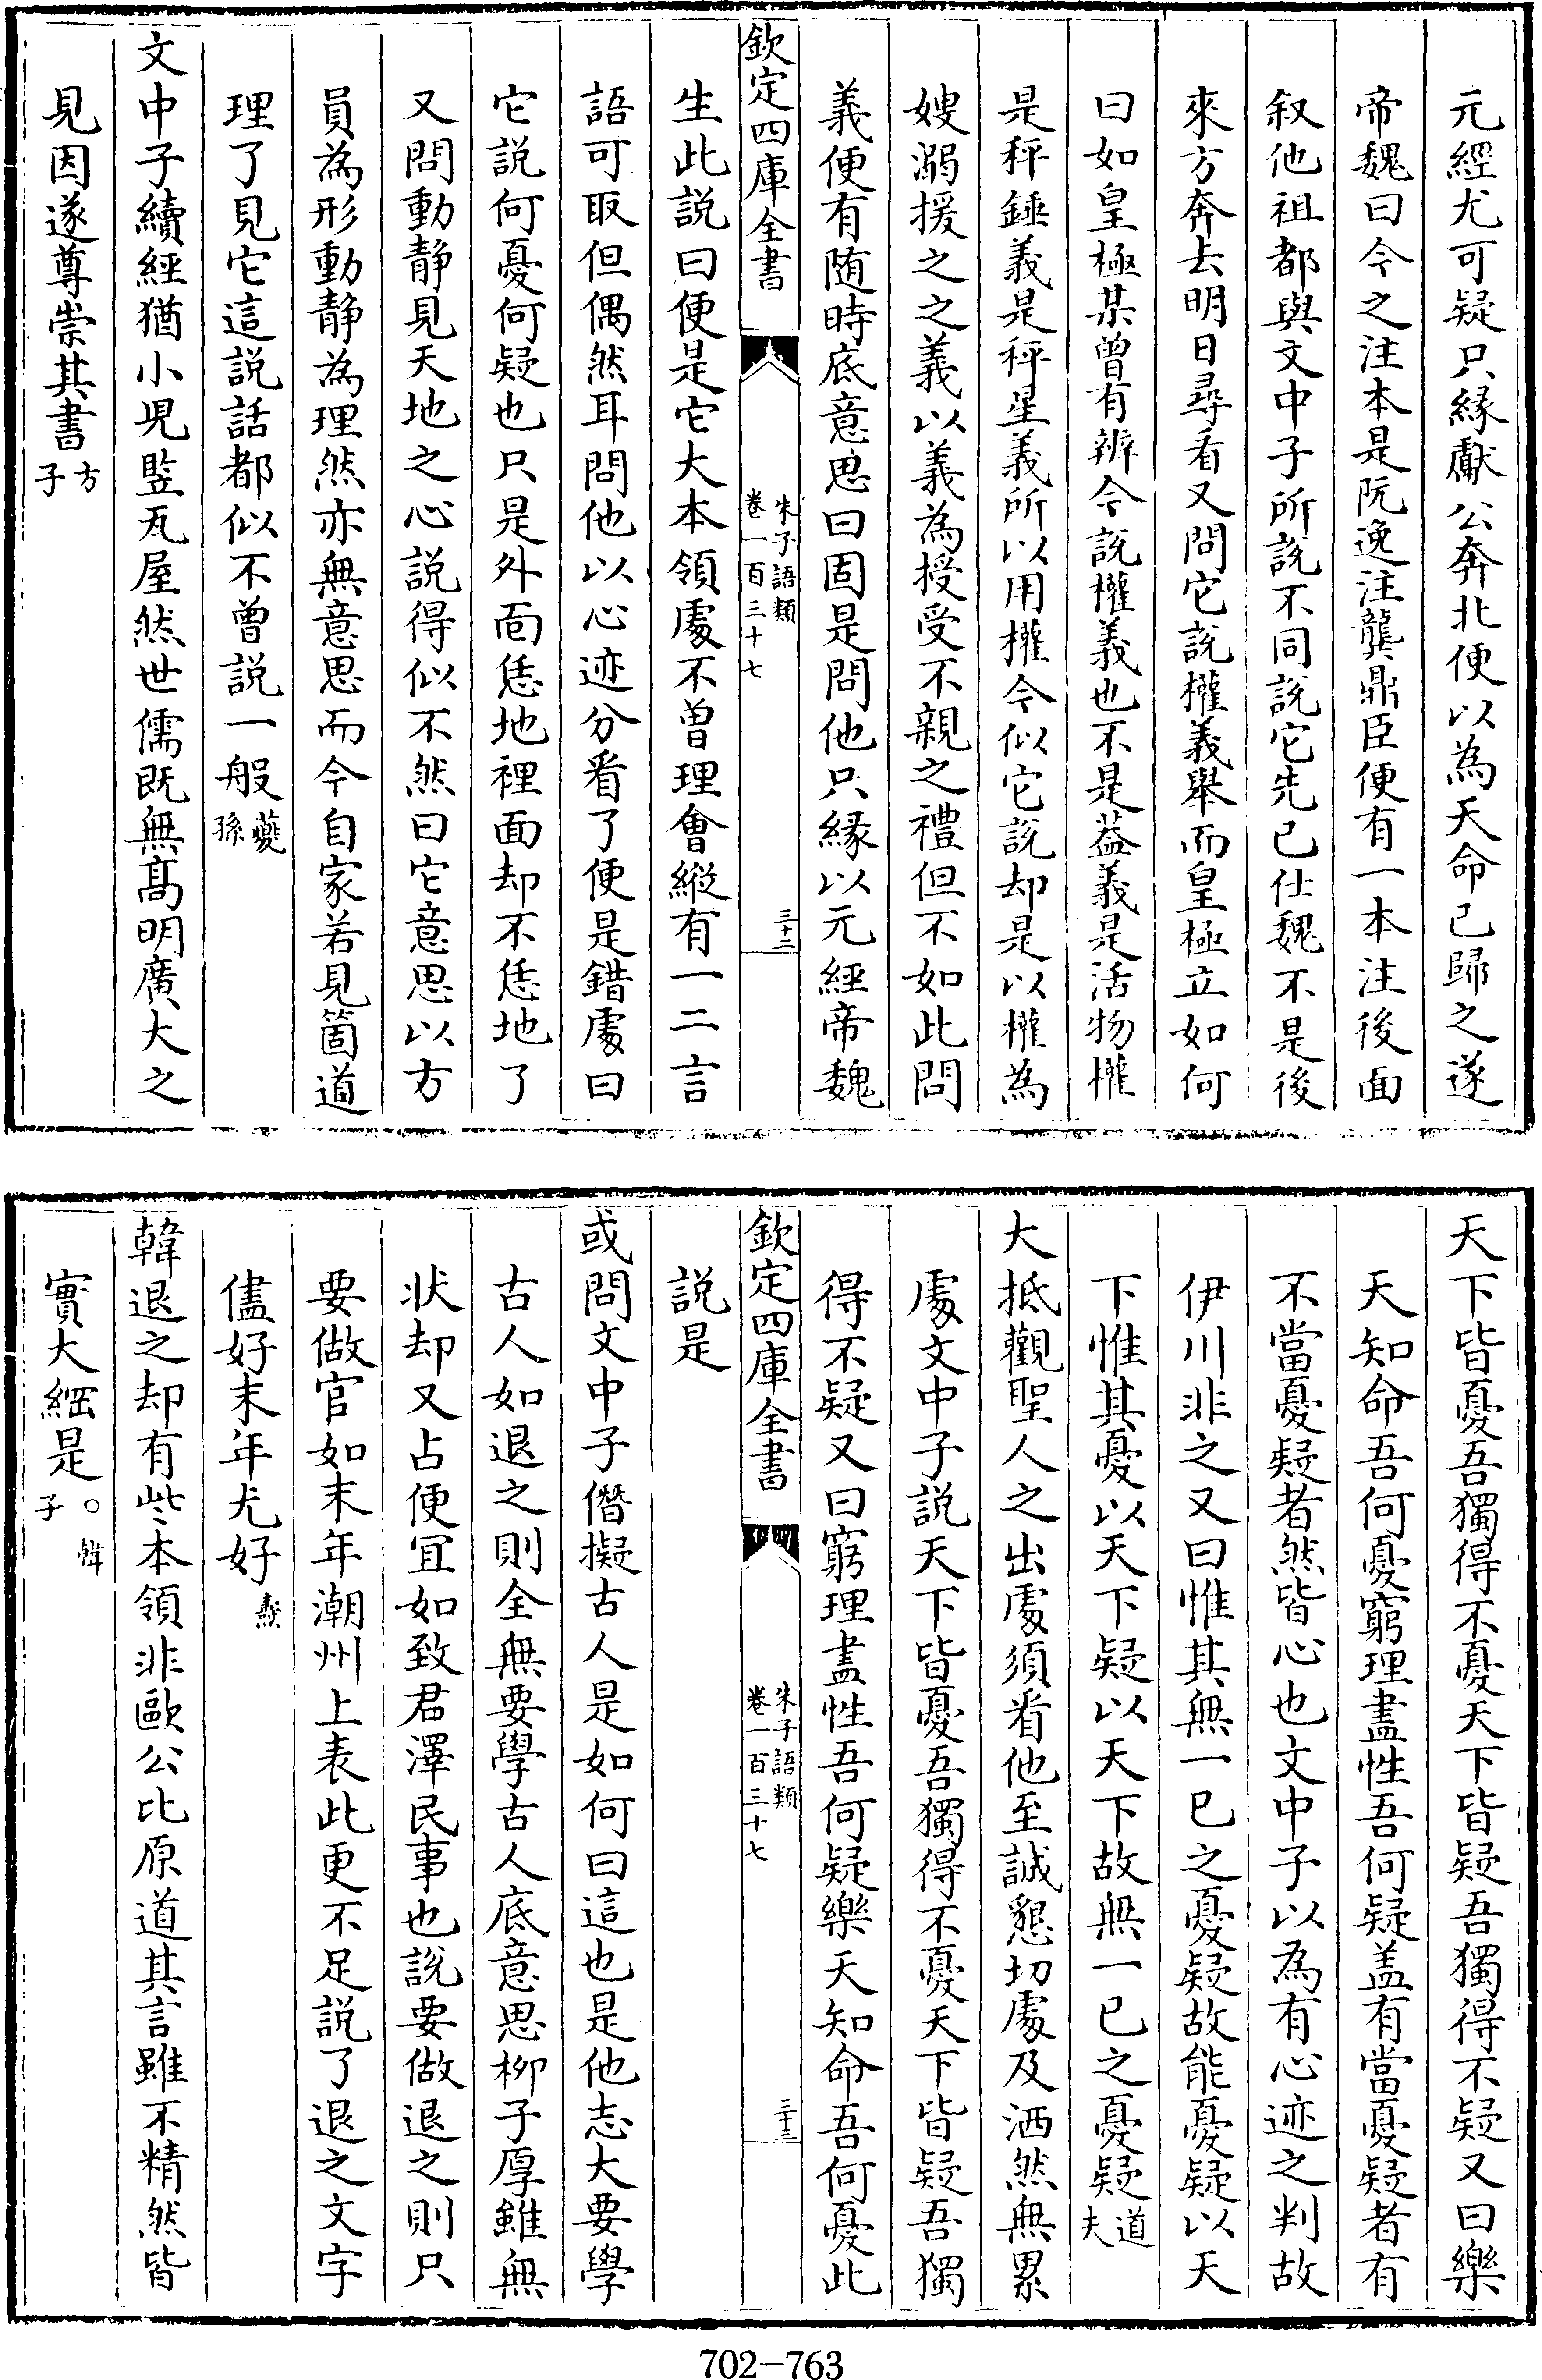 元經尤可疑只縁獻公奔北便以為天命已歸之遂
帝魏曰今之注本是阮逸注龔鼎臣便有一本注後面
叙他祖都與文中子所説不同説它先已仕魏不是後
來方奔去明日尋看又問它説權義舉而皇極立如何
曰如皇極某曾有辨今説權義也不是葢義是活物權
是秤錘義是秤星義所以用權今似它説却是以權為
嫂溺援之之義以義為授受不親之禮但不如此問
義便有随時底意思曰固是問他只縁以元經帝魏
欽定四庫全書
朱子語類
卷一百三十七
三十二
生此説曰便是它大本領處不曽理會縱有一二言
語可取但偶然耳問他以心迹分看了便是錯處曰
它説何憂何疑也只是外面恁地裡面却不恁地了
又問動静見天地之心説得似不然曰它意思以方
員為形動静為理然亦無意思而今自家若見箇道
理了見它這説話都似不曾説一般夔孫
文中子續經猶小兒竪瓦屋然世儒既無髙明廣大之
見因遂尊崇其書方子
天下皆憂吾獨得不憂天下皆疑吾獨得不疑又曰樂
天知命吾何憂窮理盡性吾何疑盖有當憂疑者有
不當憂疑者然皆心也文中子以為有心迹之判故
伊川非之又曰惟其無一已之憂疑故能憂疑以天
下惟其憂以天下疑以天下故無一已之憂疑道夫
大抵觀聖人之出處須看他至誠懇切處及洒然無累
處文中子説天下皆憂吾獨得不憂天下皆疑吾獨
得不疑又曰窮理盡性吾何疑樂天知命吾何憂此
欽定四庫全書
朱子語類
卷一百三十七
三十三
説是
或問文中子僭擬古人是如何曰這也是他志大要學
古人如退之則全無要學古人底意思柳子厚雖無
状却又占便宜如致君澤民事也說要做退之則只
要做官如末年潮州上表此更不足説了退之文字
儘好末年尤好燾
韓退之却有些本領非歐公比原道其言雖不精然皆
實大綱是○韓子
702-763